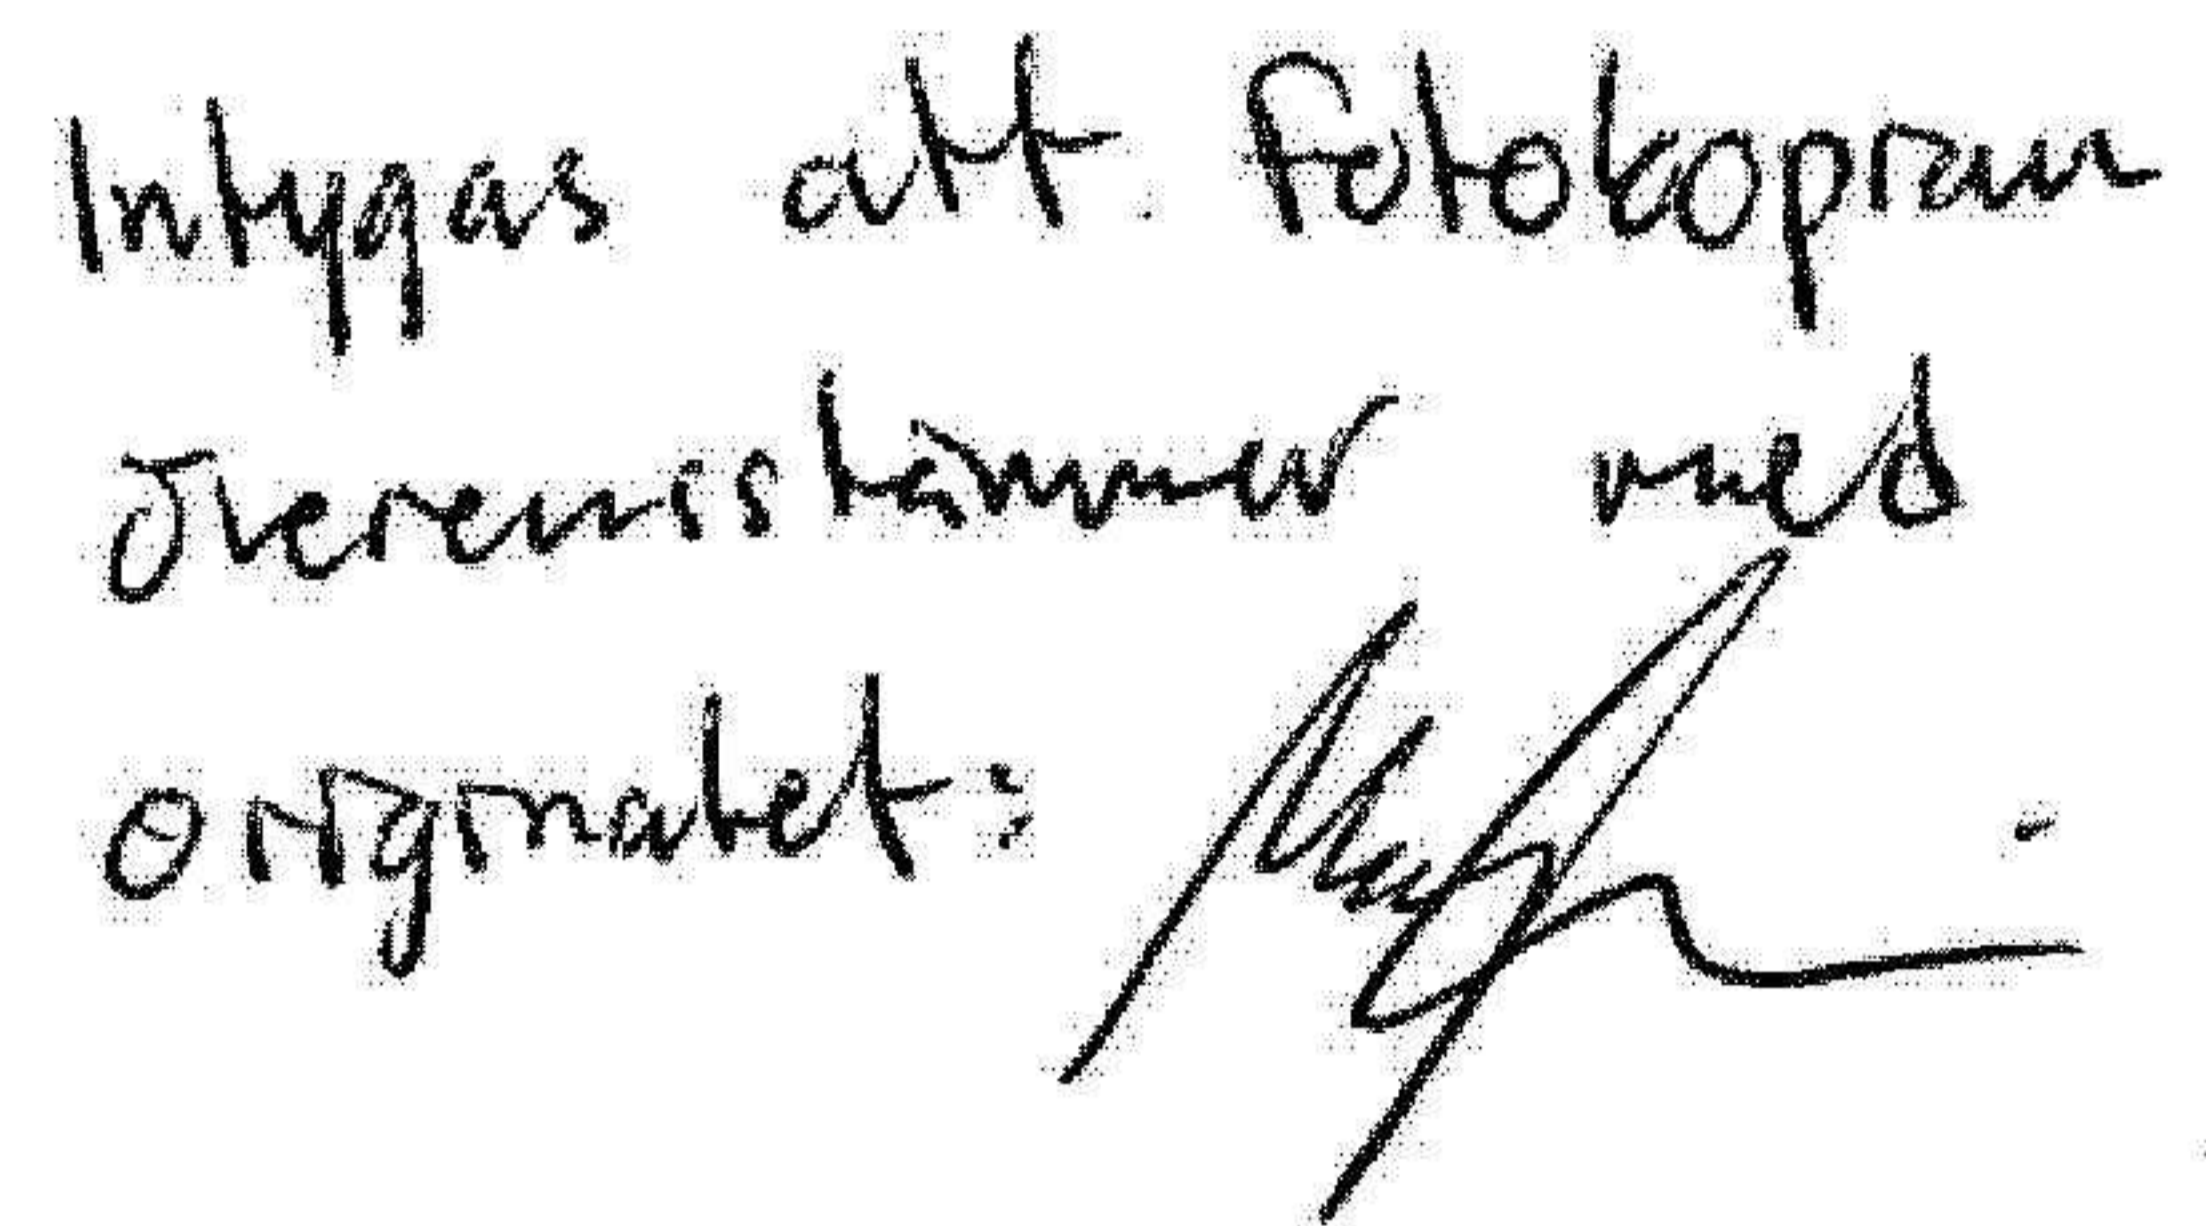 Intygas att fotokopian
överensstämmer med
originalet: